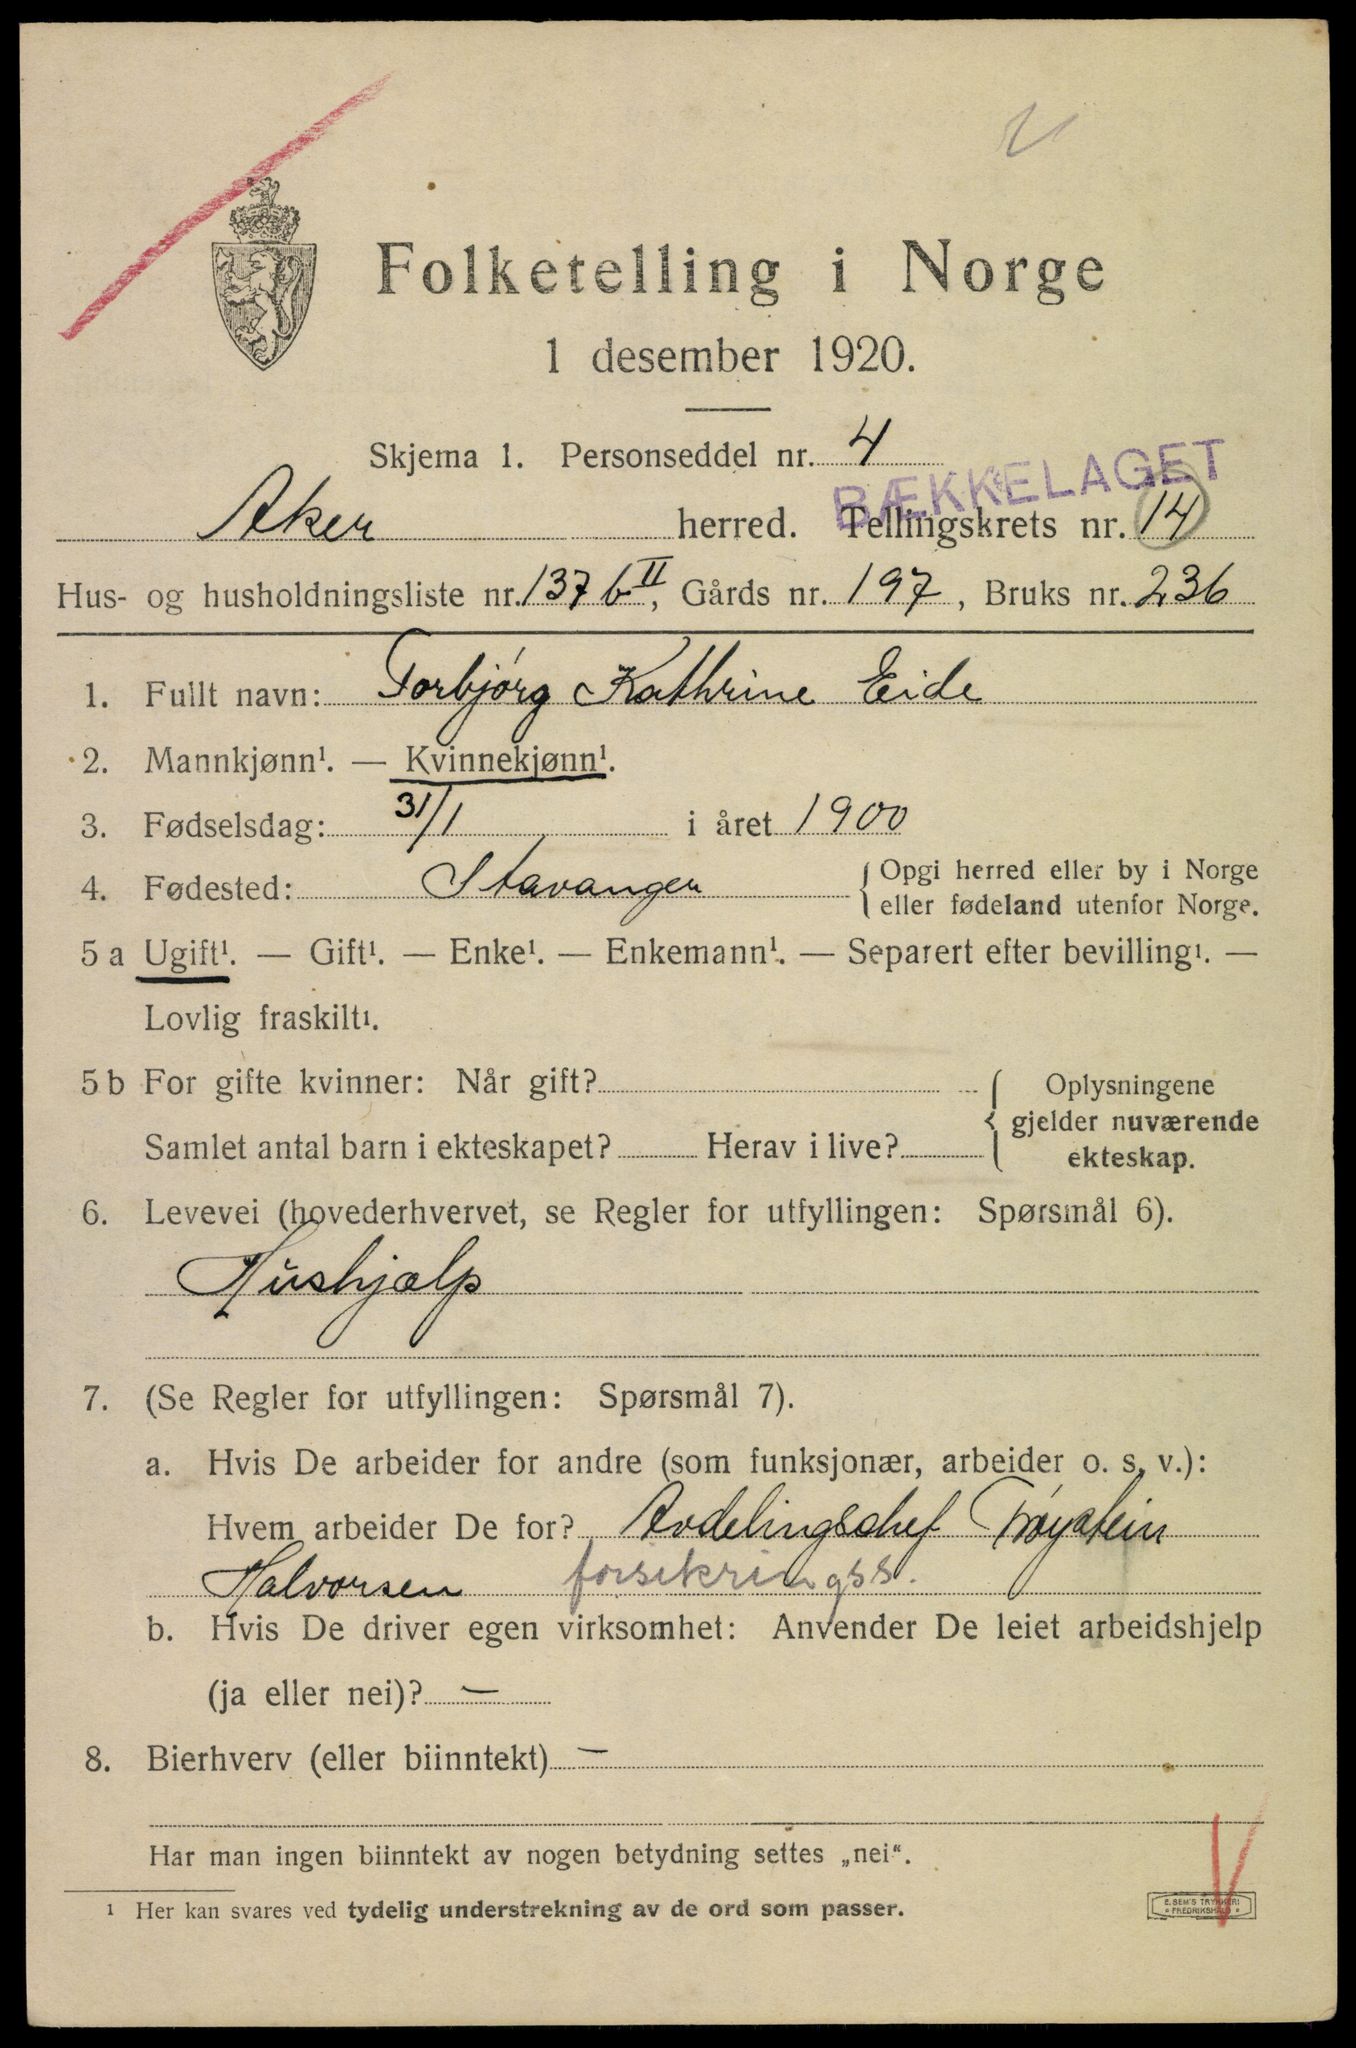 Folketelling i Norge
1 desember 1920.
Skjema 1. Personseddel nr. 4
BÆKKELAGET
Aker herred. Tellingskrets nr. 14
Hus- og husholdningsliste nr. 137 b II, Gårds nr. 197, Bruks nr. 236
1. Fullt navn: Torbjörg Kathrine Eide
2. Mannkjønn¹. — Kvinnekjønn¹.
3. Fødselsdag: 31/1 i året 1900
4. Fødested: Stavanger { Opgi herred eller by i Norge
eller fødeland utenfor Norge.
5 a Ugift¹. — Gift¹. — Enke¹. — Enkemann¹. — Separert efter bevilling¹. —
Lovlig fraskilt¹.
5 b For gifte kvinner: Når gift? { Oplysningene
gjelder nuværende
Samlet antal barn i ekteskapet? Herav i live? ekteskap.
6. Levevei (hovederhvervet, se Regler for utfyllingen: Spørsmål 6).
Hushjælp
7. (Se Regler for utfyllingen: Spørsmål 7).
a. Hvis De arbeider for andre (som funksjonær, arbeider o. s. v.):
Hvem arbeider De for? Avdelingschef Tröystein
Halvorsen forsikringss.
b. Hvis De driver egen virksomhet: Anvender De leiet arbeidshjelp
(ja eller nei)? —
8. Bierhverv (eller biinntekt) —
Har man ingen biinntekt av nogen betydning settes „nei“.
¹ Her kan svares ved tydelig understrekning av de ord som passer.
E. SEM'S TRYKKERI
FREDRIKSHALD